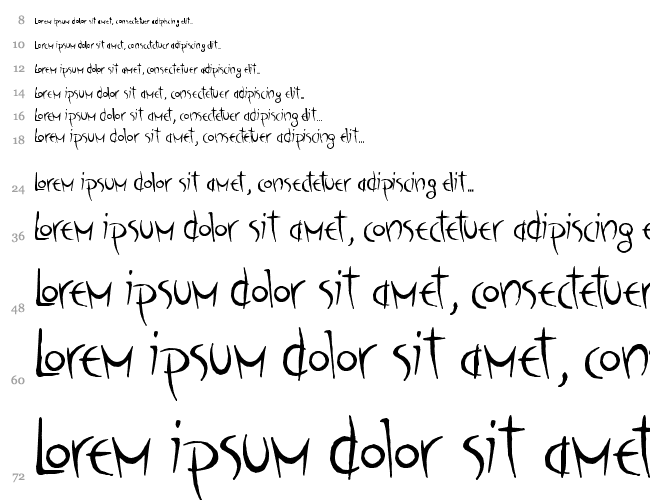 8 Lorem ipsum dolor sit amet, consectetuer adipiscing elit...
10 Lorem ipsum dolor sit amet, consectetuer adipiscing elit...
12 Lorem ipsum dolor sit amet, consectetuer adipiscing elit...
14 Lorem ipsum dolor sit amet, consectetuer adipiscing elit...
16 Lorem ipsum dolor sit amet, consectetuer adipiscing elit...
18 Lorem ipsum dolor sit amet, consectetuer adipiscing elit...
24 Lorem ipsum dolor sit amet, consectetuer adipiscing elit...
36 Lorem ipsum dolor sit amet, consectetuer adipiscing e
48 Lorem ipsum dolor sit amet, consectetuer
60 Lorem ipsum dolor sit amet, con
72 Lorem ipsum dolor sit amet